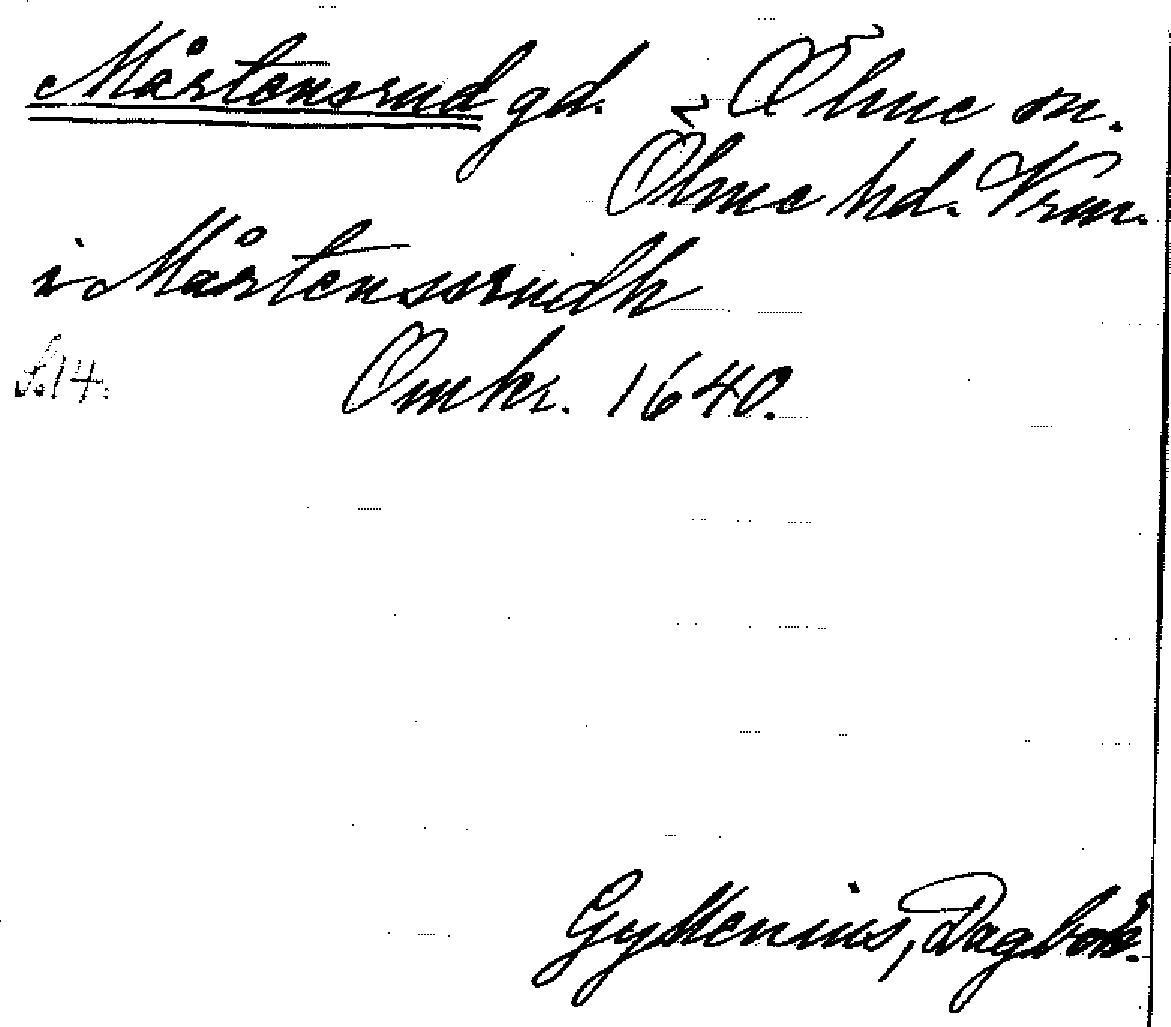 Mårtensrud gd. Ölme sn.
Ölme hd. Vrm.
i Mårtenssrudh
S. 14. Omkr. 1640.
Gyllenius, Dagbok.